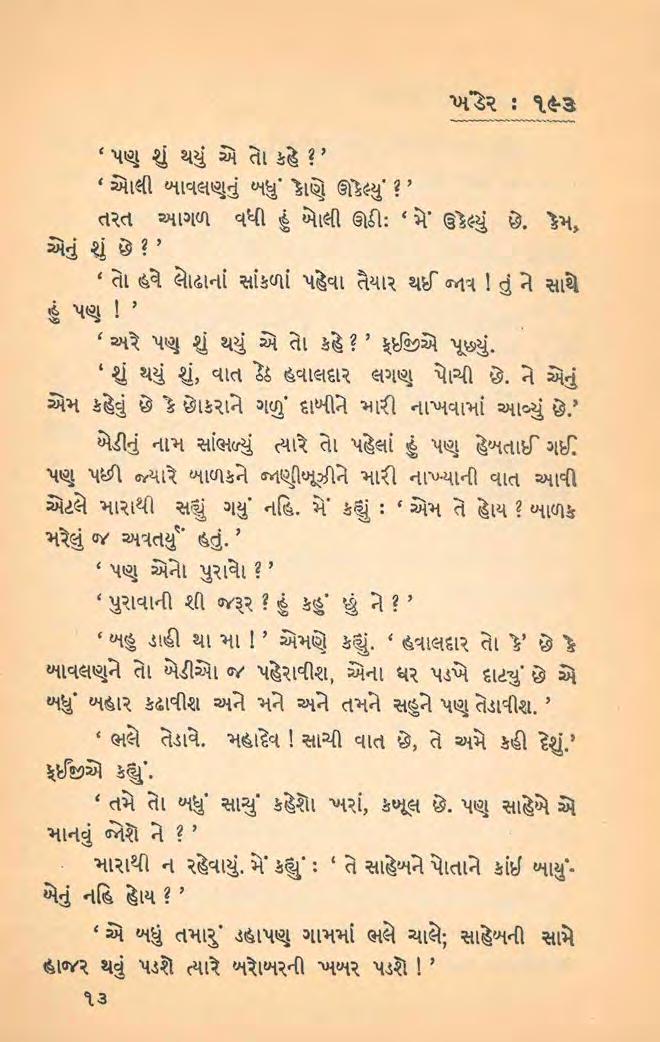 ખંડેર : ૧૯૩
‘ પણ શું થયું એ તો કહે ? ’
‘ ઓલી બાવલણનું બધું કોણે ઊકેલ્યું ? ’
તરત આગળ વધી હું બોલી ઊઠીઃ ‘ મેં ઉકેલ્યું છે. કેમ,
એનું શું છે ? ’
‘ તો હવે લોઢાનાં સાંકળાં પહેવા તૈયાર થઈ જાવ ! તું ને સાથે
હું પણ ! ’
‘ અરે પણ શું થયું એ તો કહે ? ’ ફઈજીએ પૂછ્યું.
‘ શું થયું શું, વાત ઠેઠ હવાલદાર લગણ પોચી છે. ને એનું
એમ કહેવું છે કે છોકરાને ગળું દાબીને મારી નાખવામાં આવ્યું છે.’
બેડીનું નામ સાંભળ્યું ત્યારે તો પહેલાં હું પણ હેબતાઈ ગઈ.
પણ પછી જ્યારે બાળકને જાણીબૂઝીને મારી નાખ્યાની વાત આવી
એટલે મારાથી સહ્યું ગયું નહિ. મેં કહ્યું : ‘ એમ તે હોય ? બાળક
મરેલું જ અવતર્યું હતું. ’
‘ પણ એનો પુરાવો ? ’
‘ પુરાવાની શી જરૂર ? હું કહું છું ને ? ’
‘ બહુ ડાહી થા મા ! ’ એમણે કહ્યું. ‘ હવાલદાર તો કે’ છે કે
બાવલણને તો બેડીઓ જ પહેરાવીશ, એના ઘર પડખે દાટ્યું છે એ
બધું બહાર કઢાવીશ અને મને અને તમને સહુને પણ તેડાવીશ. ’
‘ ભલે તેડાવે. મહાદેવ ! સાચી વાત છે, તે અમે કહી દેશું.’
ફઈજીએ કહ્યું.
‘ તમે તો બધું સાચું કહેશો ખરાં, કબૂલ છે. પણ સાહેબે એ
માનવું જોશે ને ? ’
મારાથી ન રહેવાયું. મેં કહ્યું : ‘ તે સાહેબને પોતાને કાંઈ બાયું-
બેનું નહિ હોય ? ’
‘ એ બધું તમારું ડહાપણ ગામમાં ભલે ચાલે; સાહેબની સામે
હાજર થવું પડશે ત્યારે બરોબરની ખબર પડશે ! ’
૧૩